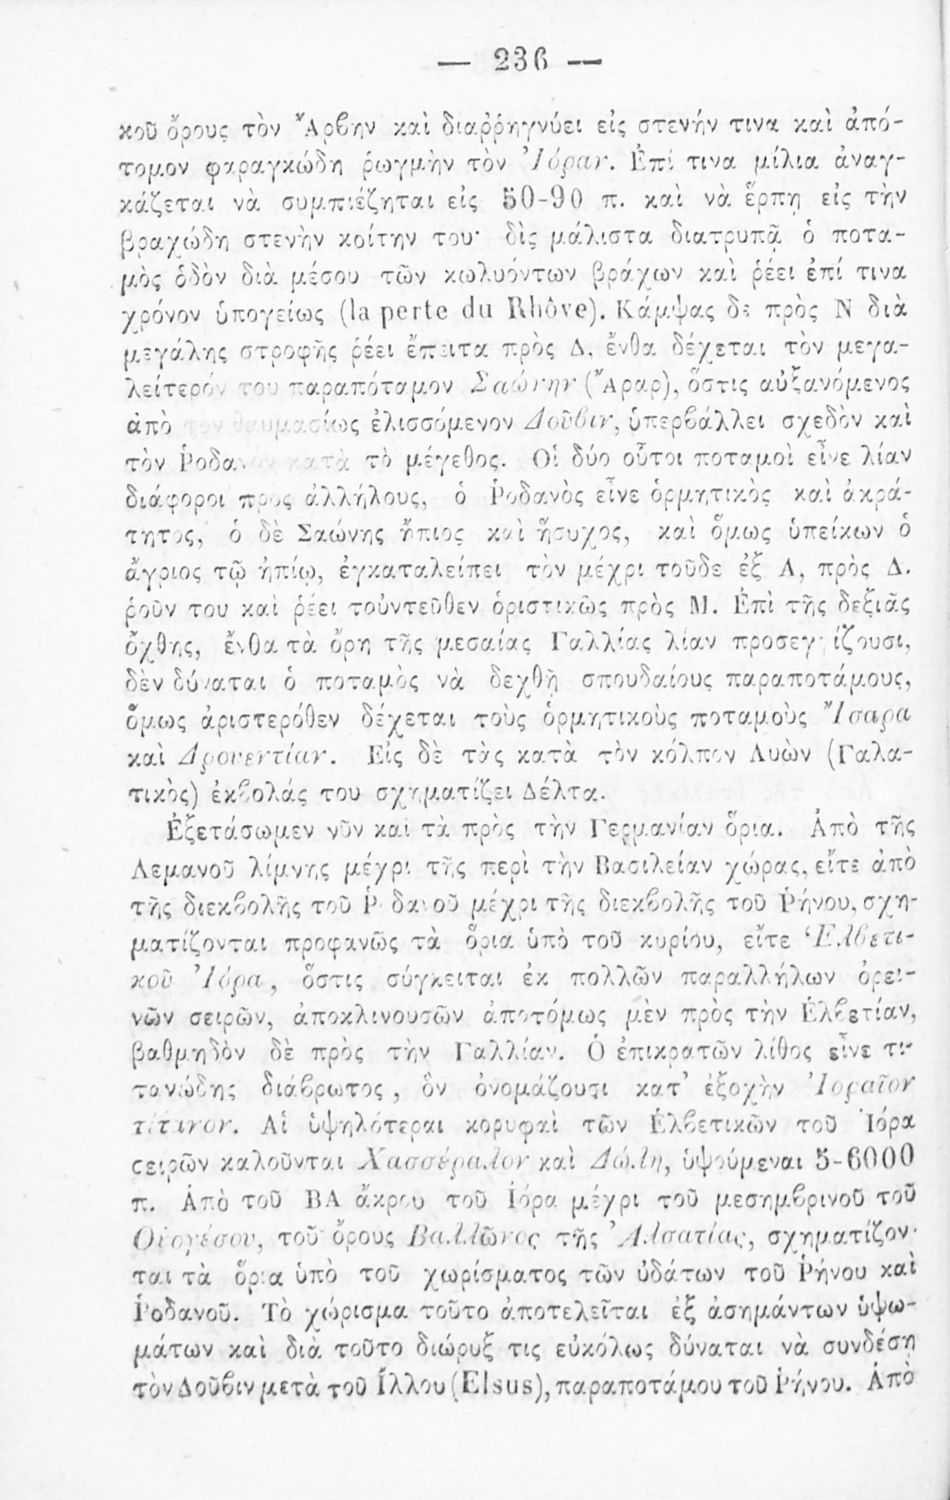 — 236 —
κοῦ ὄρους τὸν Ἄρβην καὶ διαῤῥηγνύει εἰς στενήν τινα καὶ ἀπό-
τομον φαραγκώδη ῥωγμὴν τὸν Ἰόραν. Ἐπί τινα μίλια ἀναγ-
κάζεται νὰ συμπιέζηται εἰς 50-90 π. καὶ νὰ ἕρπῃ εἰς τὴν
βραχώδη στενὴν κοίτην του· δὶς μάλιστα διατρυπᾷ ὁ ποτα-
μὸς ὁδὸν διὰ μέσου τῶν κωλυόντων βράχων καὶ ῥέει ἐπί τινα
χρόνον ὑπογείως (la perte du Rhôve). Κάμψας δὲ πρὸς Ν διὰ
μεγάλης στροφῆς ῥέει ἔπειτα πρὸς Δ. ἔνθα δέχεται τὸν μεγα-
λείτερόν του παραπόταμον Σαώνην (Ἄραρ), ὅστις αὐξανόμενος
ἀπὸ τὸν θαυμασίως ἑλισσόμενον Δοῦβιν, ὑπερβάλλει σχεδὸν καὶ
τὸν Ῥοδανὸν κατὰ τὸ μέγεθος. Οἱ δύο οὗτοι ποταμοὶ εἶνε λίαν
διάφοροι πρὸς ἀλλήλους, ὁ Ῥοδανὸς εἶνε ὁρμητικὸς καὶ ἀκρά-
τητος, ὁ δὲ Σαώνης ἤπιος καὶ ἥσυχος, καὶ ὅμως ὑπείκων ὁ
ἄγριος τῷ ἠπίῳ, ἐγκαταλείπει τὸν μέχρι τοῦδε ἐξ Α, πρὸς Δ.
ῥοῦν του καὶ ῥέει τοὐντεῦθεν ὁριστικῶς πρὸς Μ. Ἐπὶ τῆς δεξιᾶς
ὄχθης, ἔνθα τὰ ὄρη τῆς μεσαίας Γαλλίας λίαν προσεγγίζουσι,
δὲν δύναται ὁ ποταμὸς νὰ δεχθῇ σπουδαίους παραποτάμους,
ὅμως ἀριστερόθεν δέχεται τοὺς ὁρμητικοὺς ποταμοὺς Ἴσαρα
καὶ Δρουεντίαν. Εἰς δὲ τὰς κατὰ τὸν κόλπον Λυὼν (Γαλα-
τικὸς) ἐκβολάς του σχηματίζει Δέλτα.
Ἐξετάσωμεν νῦν καὶ τὰ πρὸς τὴν Γερμανίαν ὅρια. Ἀπὸ τῆς
Λεμανοῦ λίμνης μέχρι τῆς περὶ τὴν Βασιλείαν χώρας, εἴτε ἀπὸ
τῆς διεκβολῆς τοῦ Ῥοδανοῦ μέχρι τῆς διεκβολῆς τοῦ Ῥήνου, σχη-
ματίζονται προφανῶς τὰ ὅρια ὑπὸ τοῦ κυρίου, εἴτε Ἑλβετι-
κοῦ Ἰόρα, ὅστις σύγκειται ἐκ πολλῶν παραλλήλων ὀρει-
νῶν σειρῶν, ἀποκλινουσῶν ἀποτόμως μὲν πρὸς τὴν Ἑλβετίαν,
βαθμηδὸν δὲ πρὸς τὴν Γαλλίαν. Ὁ ἐπικρατῶν λίθος εἶνε τι-
τανώδης διάβρωτος, ὃν ὀνομάζουσι κατ’ ἐξοχὴν Ἰοραῖον
τίτανον. Αἱ ὑψηλότεραι κορυφαὶ τῶν Ἑλβετικῶν τοῦ Ἰόρα
σειρῶν καλοῦνται Χασσέραλον καὶ Δώλη, ὑψούμεναι 5-6000
π. Ἀπὸ τοῦ ΒΑ ἄκρου τοῦ Ἰόρα μέχρι τοῦ μεσημβρινοῦ τοῦ
Οὐογέσου, τοῦ ὄρους Βαλλῶνος τῆς Ἀλσατίας, σχηματίζον-
ται τὰ ὅρια ὑπὸ τοῦ χωρίσματος τῶν ὑδάτων τοῦ Ῥήνου καὶ
Ῥοδανοῦ. Τὸ χώρισμα τοῦτο ἀποτελεῖται ἐξ ἀσημάντων ὑψω-
μάτων καὶ διὰ τοῦτο διώρυξ τις εὐκόλως δύναται νὰ συνδέσῃ
τὸν Δοῦβιν μετὰ τοῦ Ἴλλου (Elsus), παραποτάμου τοῦ Ῥήνου. Ἀπὸ